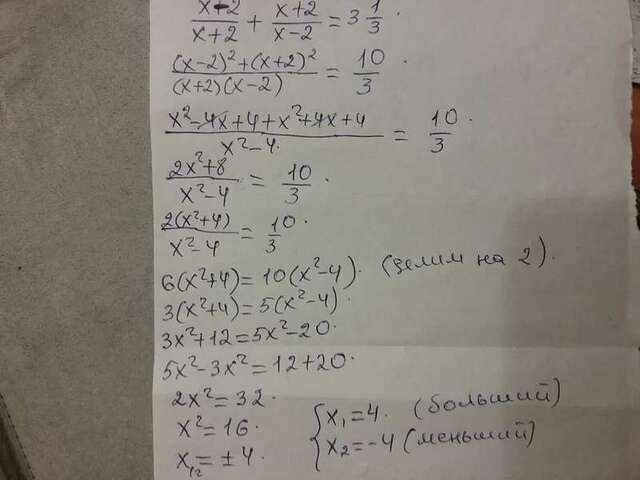 (x-2)/(x+2) + (x+2)/(x-2) = 3 1/3.
((x-2)²+(x+2)²)/((x+2)(x-2)) = 10/3.
(x²-4x+4+x²+4x+4)/(x²-4) = 10/3.
(2x²+8)/(x²-4) = 10/3.
2(x²+4)/(x²-4) = 10/3.
6(x²+4)=10(x²-4). (делим на 2).
3(x²+4)=5(x²-4).
3x²+12=5x²-20.
5x²-3x²=12+20.
2x²=32.
x²=16.
x₁,₂=±4.
{ x₁=4. (больший)
x₂=-4 (меньший)